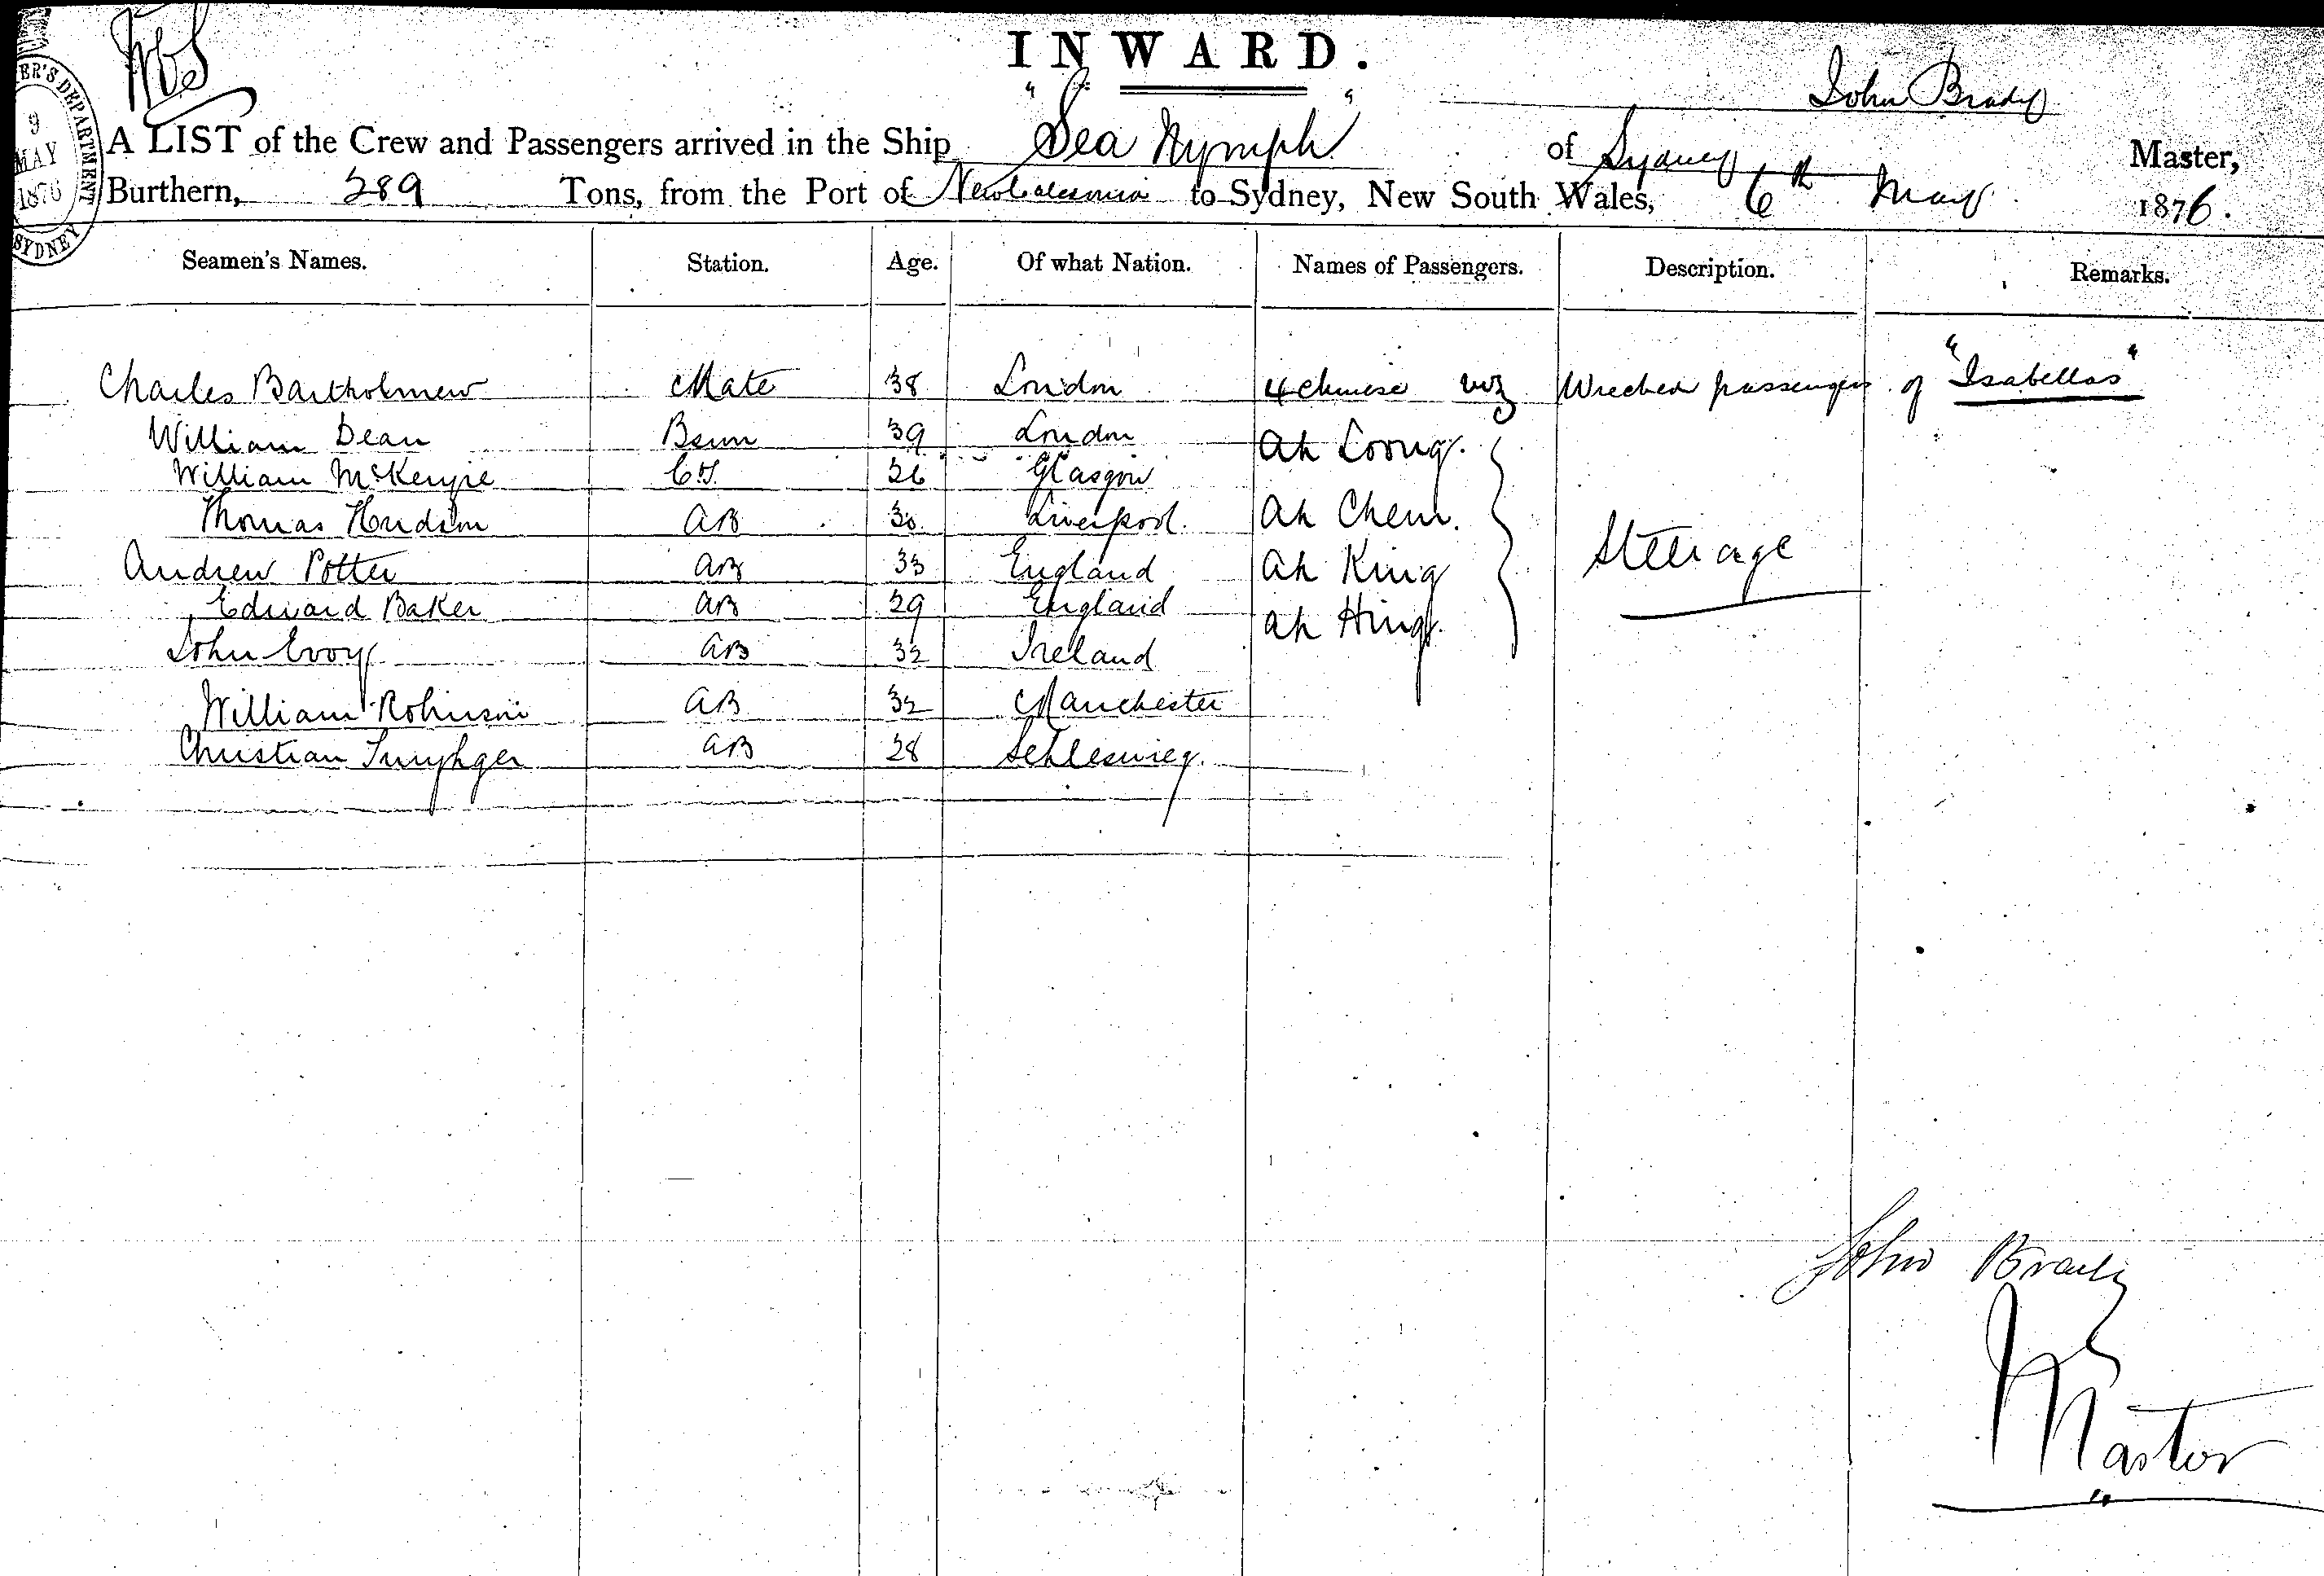 INWARD.
John Brady
ER'S DEPARTMENT
9
MAY
1876
SYDNEY
A LIST of the Crew and Passengers arrived in the Ship "Sea Nymph" of Sydney Master,
Burthern, 289 Tons, from the Port of New Caledonia to Sydney, New South Wales, 6th May 1876.
Seamen's Names. Station. Age. Of what Nation. Names of Passengers. Description. Remarks.
Charles Bartholmew Mate 38 London 4 Chinese viz Wrecked passengers of "Isabellas"
William Dean Bsun 39 London Ah Loong.
William McKenzie 26 Glasgow
Thomas Hudson AB 30 Liverpool. Ah Chem.
Andrew Potter AB 33 England Ah King Steerage
Edward Baker AB 29 England Ah Hing.
John Evoy AB 32 Ireland
William Robinson AB 32 Manchester
Christian AB 28 Schleswieg.
John Brady
Master